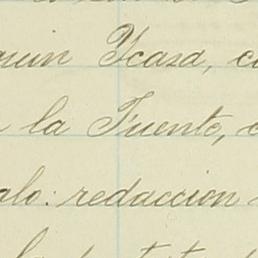 quin Ycasa, c
la Fuente, c
alo: redaccion